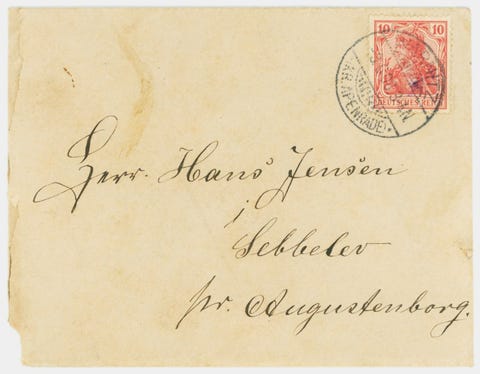 10 10
DEUTSCHES REICH
(KR. APENRADE)
Herr. Hans Jensen
i
Sebbelev
pr. Augustenborg.